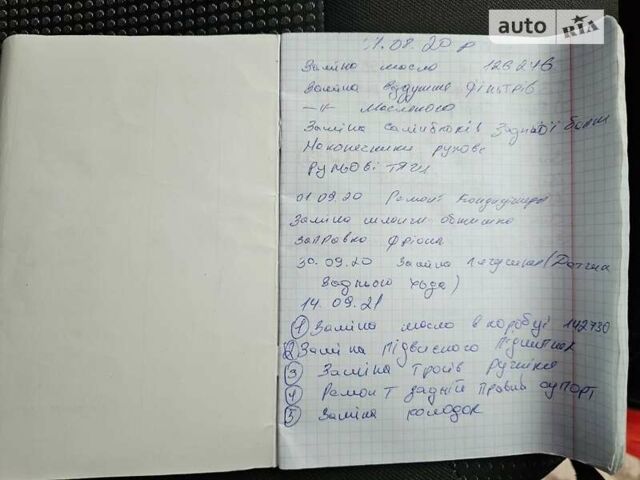 auto RIA
.08.20 р
Заміна масла 126216
Заміна воздушних фільтрів
—//— Масленого
Заміна Саленблоків Задньої балки
Наконечники рулові
Рульові тяги
01.09.20 Ремонт Кондиціонера
Заміна шланги
Заправка фріона
30.09.20 Заміна (Датчик
Заднього хода)
14.09.21
1 Заміна масла в коробці 142730
2 Заміна Підвісного Підшипник
3 Заміна тросів ручніка
4 Ремонт задній правий супорт
5 Заміна колодок